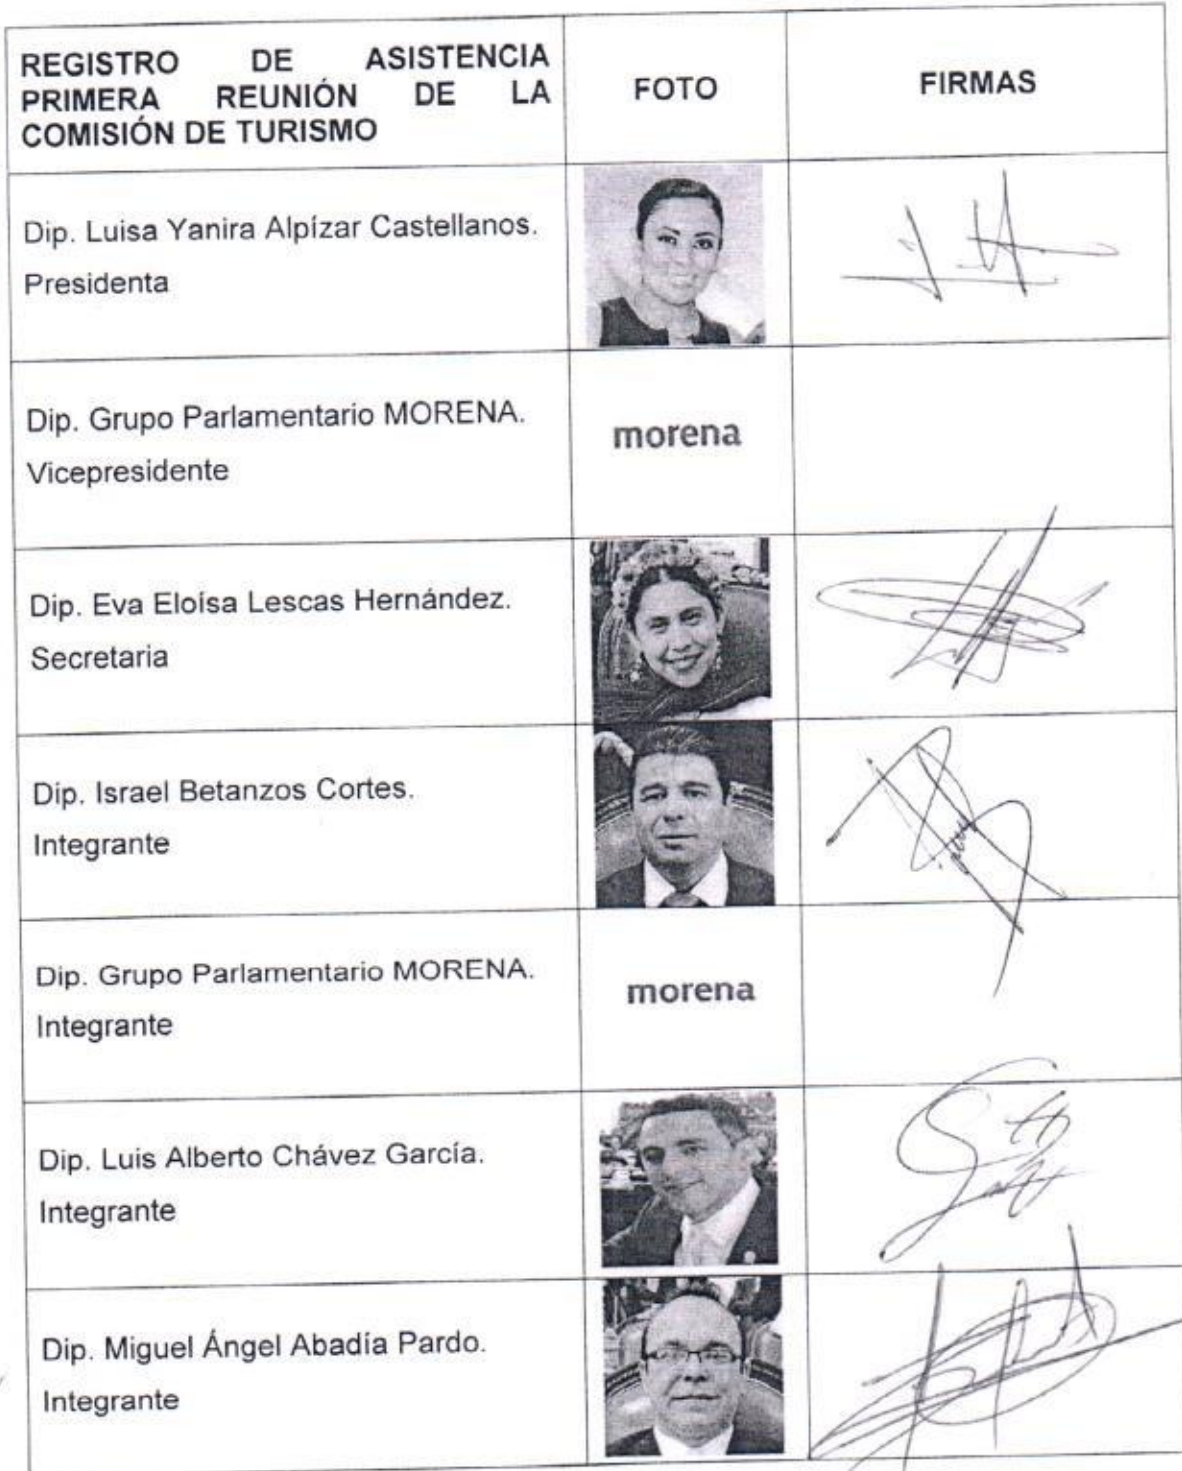 REGISTRO DE ASISTENCIA
PRIMERA REUNIÓN DE LA
COMISIÓN DE TURISMO
FOTO
FIRMAS
Dip. Luisa Yanira Alpízar Castellanos.
Presidenta
Dip. Grupo Parlamentario MORENA.
Vicepresidente
morena
Dip. Eva Eloísa Lescas Hernández.
Secretaria
Dip. Israel Betanzos Cortes.
Integrante
Dip. Grupo Parlamentario MORENA.
Integrante
morena
Dip. Luis Alberto Chávez García.
Integrante
Dip. Miguel Ángel Abadía Pardo.
Integrante